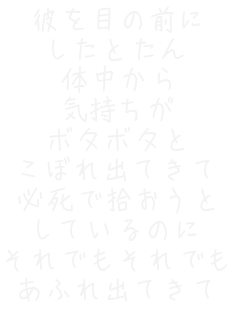 彼を目の前に
したとたん
体中から
気持ちが
ボタボタと
こぼれ出てきて
必死で拾おうと
しているのに
それでもそれでも
あふれ出てきて